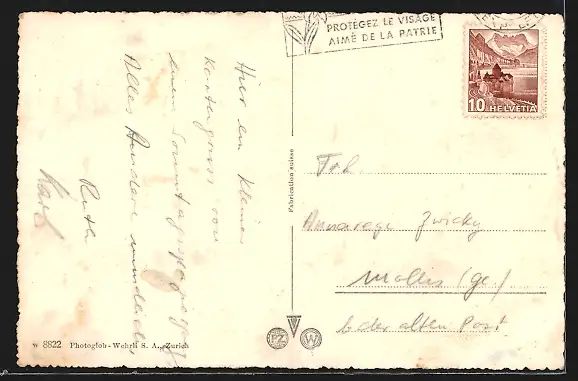 PROTÉGEZ LE VISAGE
AIMÉ DE LA PATRIE
10 HELVETIA
Hier ein kleiner
Kartengruss von
einem Sonntagsspaziergang
Alles Andere mündlich
Ruth
Karl
Fabrication suisse
Frl.
Annarosa Zwicky
Mollis (Gl.)
b. der alten Post
W 8822 Photoglob-Wehrli S. A., Zurich
PZ W